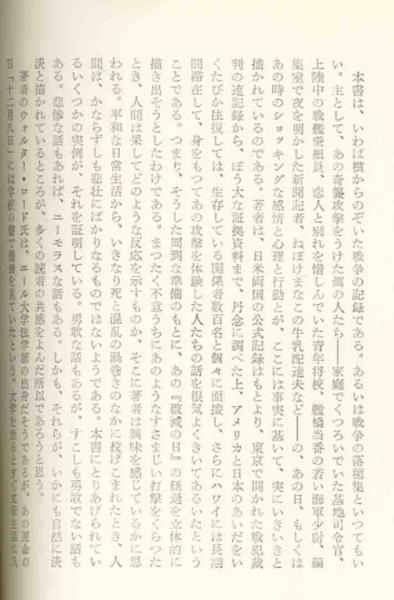 本書は、いわば横からのぞいた戦争の記録である。あるいは戦争の落穂集といつてもい
い。主として、あの奇襲攻撃をうけた側の人たち――家庭でくつろいでいた基地司令官、
上陸中の戦艦乗組員、恋人と別れを惜しんでいた青年将校、艦橋当番の若い海軍少尉、編
集室で夜を明かした新聞記者、ねぼけまなこの牛乳配達夫など――の、あの日、もしくは
あの時のショッキングな感情と心理と行動とが、ここには事実に基いて、実にいきいきと
描かれているのである。著者は、日米両国の公式記録はもとより、東京で開かれた戦犯裁
判の速記録から、ぼう大な証拠資料まで、丹念に調べた上、アメリカと日本のあいだをい
くたびか往復しては、生存している関係者数百名と個々に面接し、さらにハワイには長期
間滞在して、身をもつてあの攻撃を体験した人たちの話を根気よくきいてあるいたという
ことである。つまり、そうした周到な準備のもとに、あの『破滅の日』の経過を立体的に
描き出そうとしたわけである。まつたく不意うちにあのようなすさまじい打撃をくらつた
とき、人間は果してどのような反応を示すものか、そこに著者は興味を感じているかに思
われる。平和な日常生活から、いきなり死と混乱の渦巻きのなかに投げこまれたとき、人
間は、かならずしも悲壮にばかりなるものではないようである。本書にとりあげられてい
るいくつかの実例が、それを証明している。勇敢な話もあるが、すこしも勇敢でない話も
ある。悲惨な話もあれば、ユーモラスな話もある。しかも、それらが、いかにも自然に淡
淡と描かれているところが、多くの読者の共感をよんだ所以であろうと思う。
著者のウォルター・ロード氏は、エール大学法学部の出身だそうであるが、あの運命の
日「十二月八日」には学校の寮で